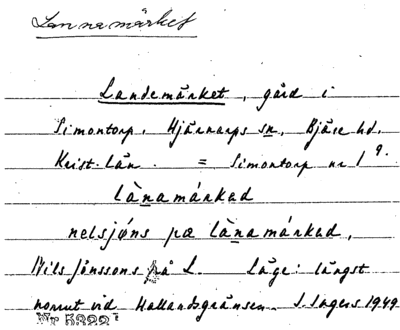 Lannamärket
Landemärket, gård i
Simontorp, Hjärnarps sn, Bjäre hd.
Krist. län. = Simontorp nr 1 9.
là̠namárkad
nelsjǿns pæ là̠namárkad,
Nils Jönssons på L. Läge: längst
norrut vid Hallandsgränsen. S. Ingers 1949
Nr 5322